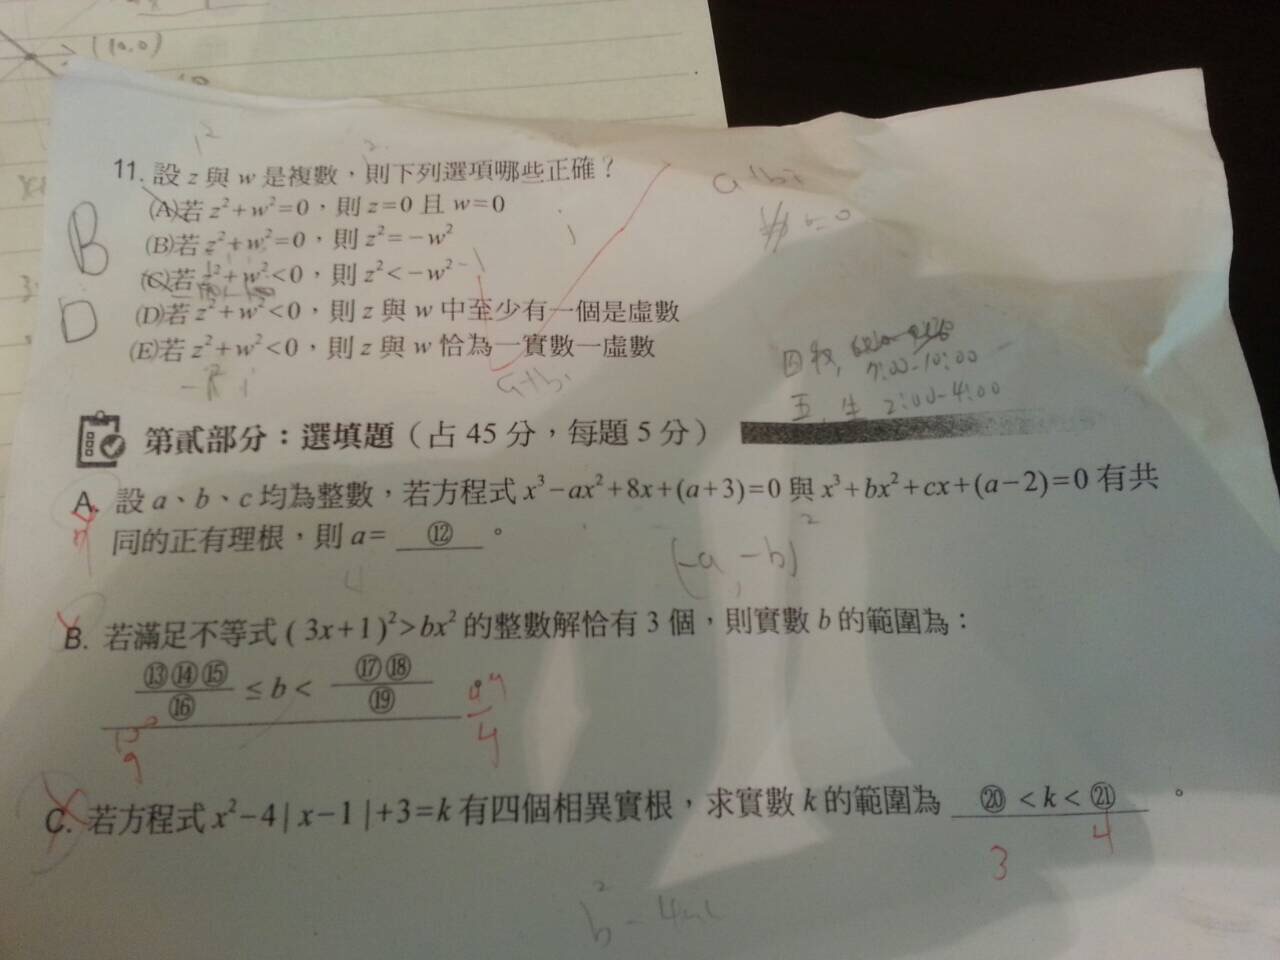 (10.0)
11. 設 z 與 w 是複數，則下列選項哪些正確？
(A)若 z²+w²=0，則 z=0 且 w=0
(B)若 z²+w²=0，則 z²=-w²
(C)若 z²+w²<0，則 z²<-w²
(D)若 z²+w²<0，則 z 與 w 中至少有一個是虛數
(E)若 z²+w²<0，則 z 與 w 恰為一實數一虛數
B
D
a+bi
7:00-10:00
2:00-4:00
a+bi
第貳部分：選填題（占 45 分，每題 5 分）
A. 設 a、b、c 均為整數，若方程式 x³-ax²+8x+(a+3)=0 與 x³+bx²+cx+(a-2)=0 有共
同的正有理根，則 a= ⑫ 。
(-a, -b)²
B. 若滿足不等式 ( 3x+1 )²>bx² 的整數解恰有 3 個，則實數 b 的範圍為：
⑬⑭⑮/⑯ ≤ b < ⑰⑱/⑲ 。
C. 若方程式 x²-4|x-1|+3=k 有四個相異實根，求實數 k 的範圍為 ⑳ <k< ㉑ 。
3
4